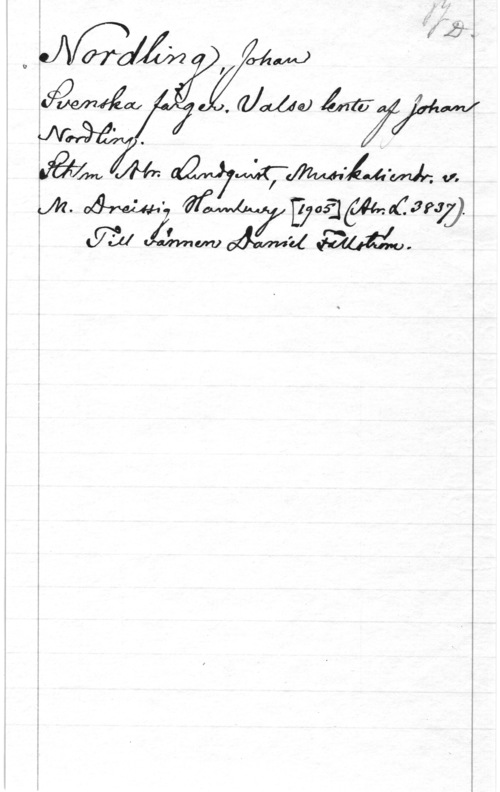 Nordling, Johan
Svenska färger. Valse lente af Johan
Nordling.
Sthlm Abr. Lundquist, Musikalienhr. v.
M. Dreissig Hamburg [1905] (Abr. L. 3837).
Till vännen Daniel Fallström.